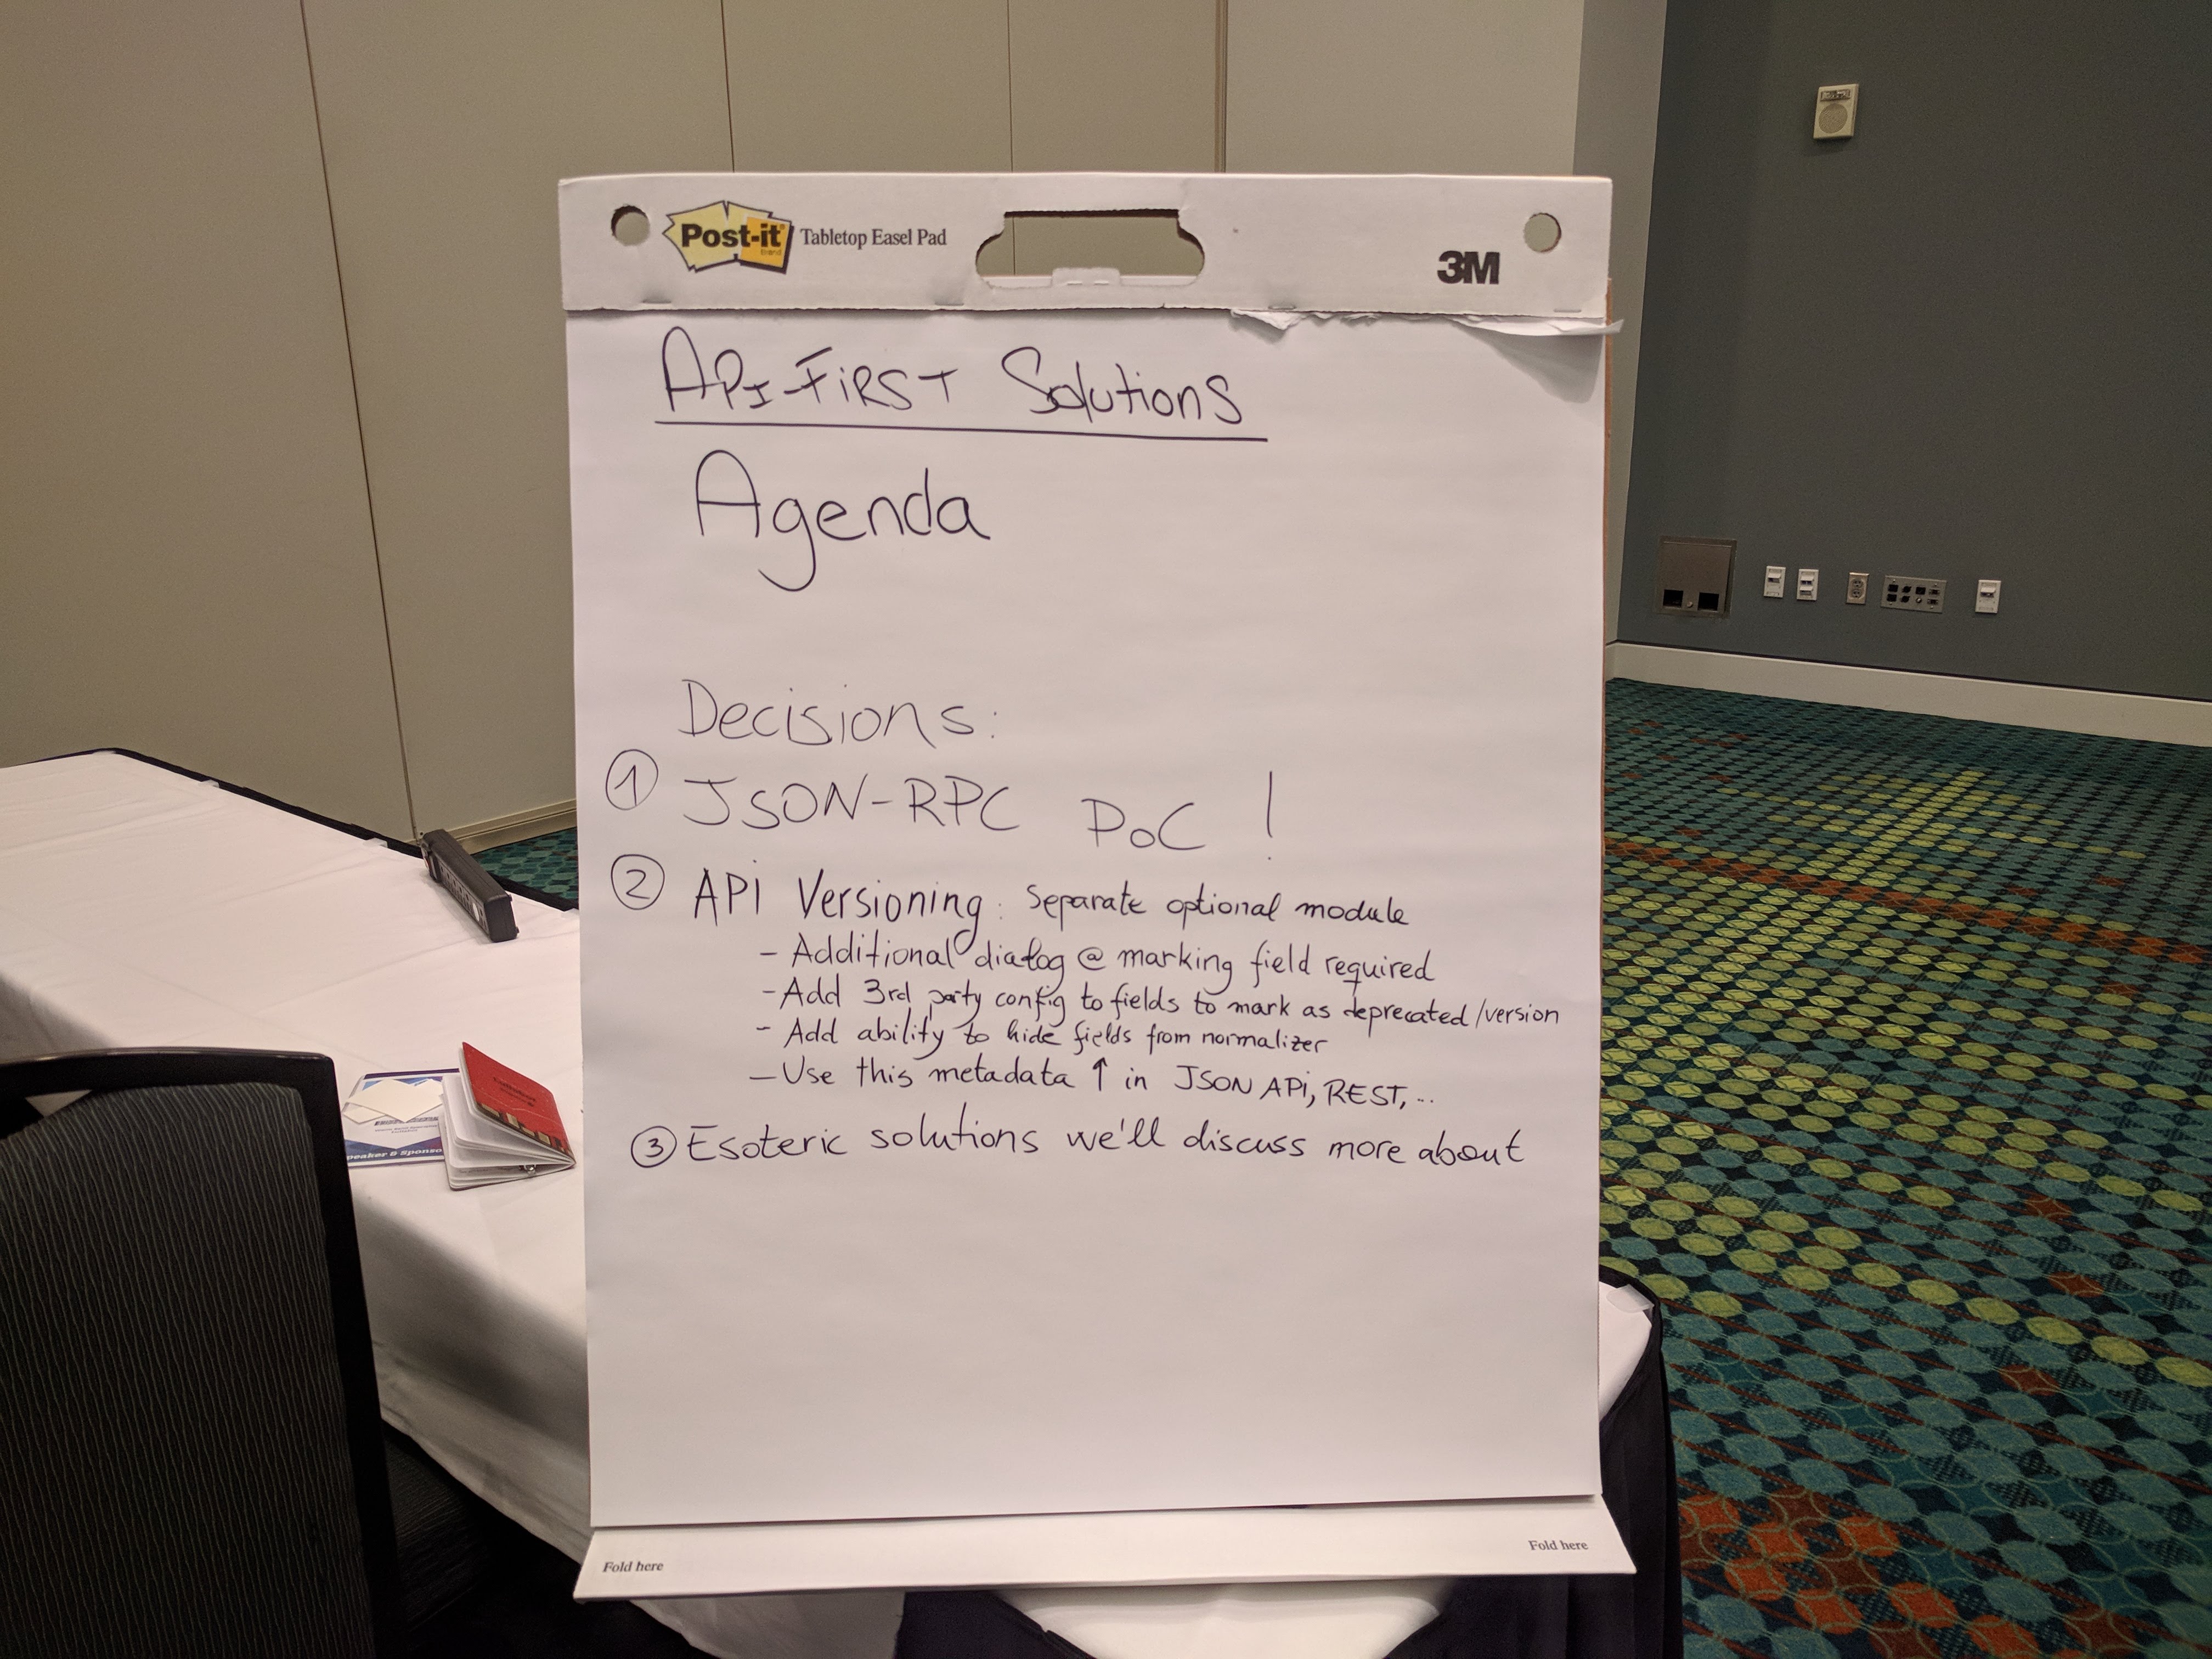 Post-it
Brand
Tabletop Easel Pad
3M
API-FiRST Solutions
Agenda
Decisions:
① JSON-RPC PoC !
② APi Versioning: separate optional module
- Additional dialog @ marking field required
- Add 3rd party config to fields to mark as deprecated/version
- Add ability to hide fields from normalizer
- Use this metadata ↑ in JSON APi, REST, ..
③ Esoteric solutions we'll discuss more about
peaker & Sponso
Fold here
Fold here